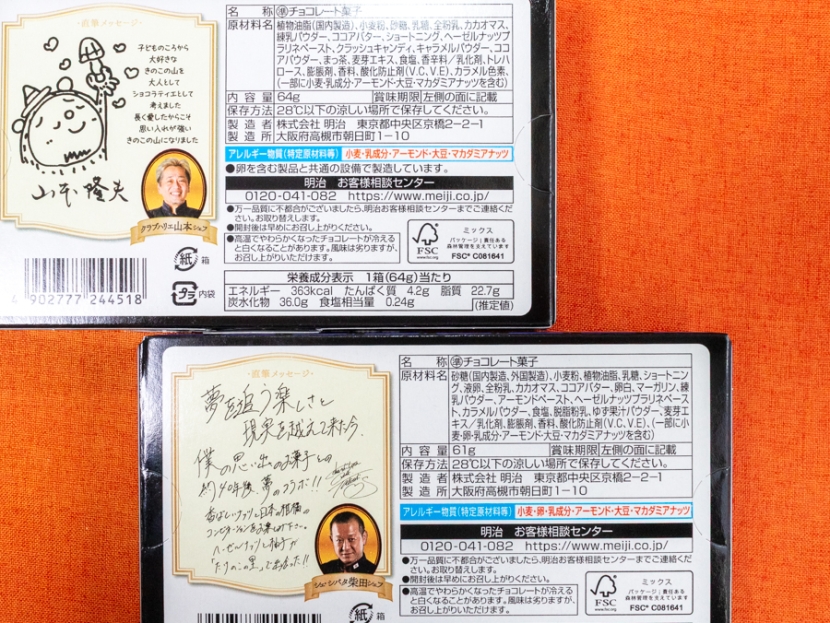 直筆メッセージ
子どものころから
大好きな
きのこの山を
大人として
ショコラティエとして
考えました
長く愛したからこそ
思い入れが強い
きのこの山になりました
山本隆夫
クラブハリエ山本シェフ
4 902777 244518
紙 箱
プラ 内袋
名 称 準チョコレート菓子
原材料名 植物油脂(国内製造)、小麦粉、砂糖、乳糖、全粉乳、カカオマス、
練乳パウダー、ココアバター、ショートニング、ヘーゼルナッツプ
ラリネペースト、クラッシュキャンディ、キャラメルパウダー、ココ
アパウダー、まっ茶、麦芽エキス、食塩、香辛料/乳化剤、トレハ
ロース、膨脹剤、香料、酸化防止剤(V.C、V.E)、カラメル色素、
(一部に小麦・乳成分・アーモンド・大豆・マカダミアナッツを含む)
内 容 量 64g 賞味期限 左側の面に記載
保存方法 28℃以下の涼しい場所で保存してください。
製 造 者 株式会社 明治 東京都中央区京橋2-2-1
製 造 所 大阪府高槻市朝日町1-10
アレルギー物質(特定原材料等) 小麦・乳成分・アーモンド・大豆・マカダミアナッツ
●卵を含む製品と共通の設備で製造しています。
明治 お客様相談センター
0120-041-082 https://www.meiji.co.jp/
●万一品質に不都合がございましたら、明治お客様相談センターまでご連絡くだ
さい。お取り替えします。
●開封後は早めにお召し上りください。
●高温でやわらかくなったチョコレートが冷える
と白くなることがあります。風味は劣りますが、
お召し上がりいただけます。
FSC
www.fsc.org
ミックス
パッケージ|責任ある
森林管理を支えています
FSC® C081641
栄養成分表示 1箱(64g)当たり
エネルギー 363kcal たんぱく質 4.2g 脂質 22.7g
炭水化物 36.0g 食塩相当量 0.24g (推定値)
直筆メッセージ
夢を追う楽しさと
現実を越えて来た今、
僕の思い出のお菓子との
約40年後、夢のコラボ!!
香ばしいナッツと日本の柑橘の
コンビネーションをお楽しみ下さい。
ヘーゼルナッツと柚子が
「たけのこの里」で出会った!!
シェ・シバタ柴田シェフ
紙 箱
名 称 準チョコレート菓子
原材料名 砂糖(国内製造、外国製造)、小麦粉、植物油脂、乳糖、ショートニン
グ、液卵、全粉乳、カカオマス、ココアバター、卵白、マーガリン、練
乳パウダー、アーモンドペースト、ヘーゼルナッツプラリネペース
ト、カラメルパウダー、食塩、脱脂粉乳、ゆず果汁パウダー、麦芽エ
キス/乳化剤、膨脹剤、香料、酸化防止剤(V.C、V.E)、(一部に小
麦・卵・乳成分・アーモンド・大豆・マカダミアナッツを含む)
内 容 量 61g 賞味期限 左側の面に記載
保存方法 28℃以下の涼しい場所で保存してください。
製 造 者 株式会社 明治 東京都中央区京橋2-2-1
製 造 所 大阪府高槻市朝日町1-10
アレルギー物質(特定原材料等) 小麦・卵・乳成分・アーモンド・大豆・マカダミアナッツ
明治 お客様相談センター
0120-041-082 https://www.meiji.co.jp/
●万一品質に不都合がございましたら、明治お客様相談センターまでご連絡くだ
さい。お取替えします。
●開封後は早めにお召し上りください。
●高温でやわらかくなったチョコレートが冷える
と白くなることがあります。風味は劣りますが、
お召し上がりいただけます。
FSC
www.fsc.org
ミックス
パッケージ|責任ある
森林管理を支えています
FSC® C081641